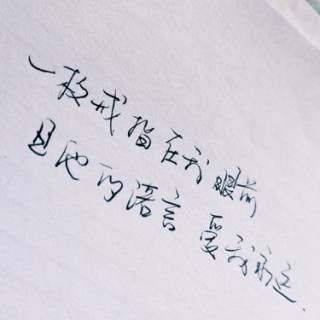 一枚戒指在我眼前
且他的语言 爱我永远.